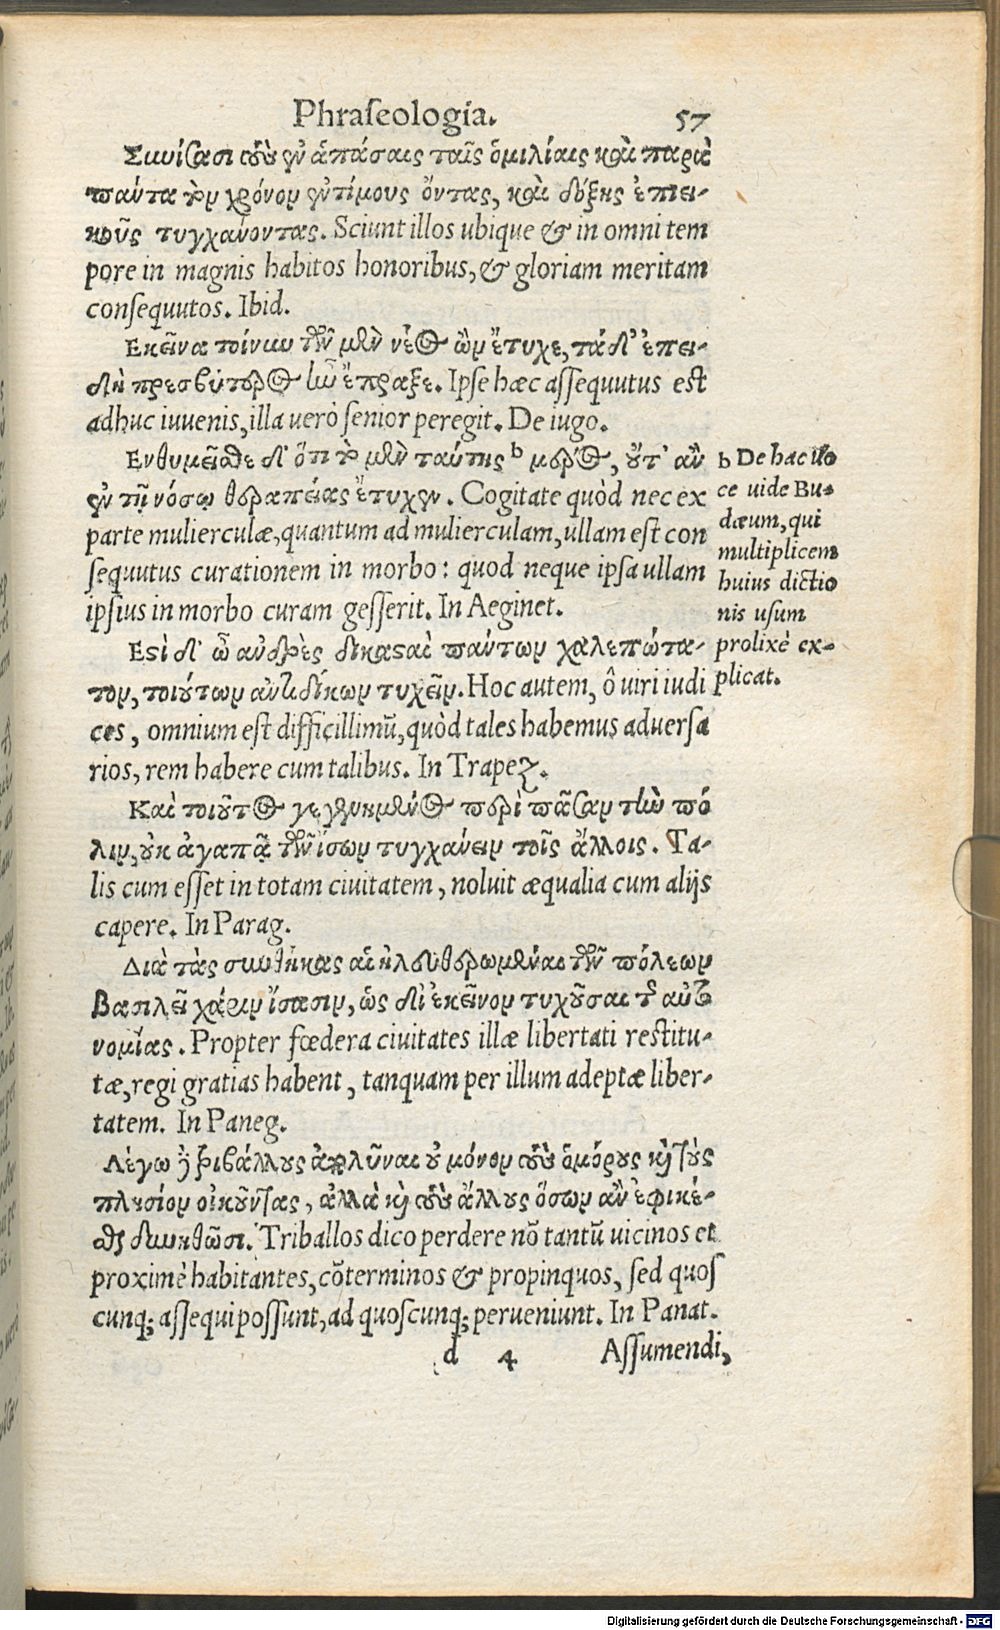 Phraſeologia. 57
Συνίσασι τοὺς ἐν ἁπάσαις ταῖς ὁμιλίαις καὶ παρὰ
πάντα τὸν χρόνον ἐντίμους ὄντας, καὶ δόξης ἐπιει-
κοῦς τυγχάνοντας. Sciunt illos ubique & in omni tem
pore in magnis habitos honoribus, & gloriam meritam
conſequutos. Ibid.
Εκεῖνα τοίνυν τῶν μὲν νέος ὢν ἔτυχε, τὰ δ' ἐπει-
δὴ πρεσβύτερος ἦν ἔπραξε. Ipſe hæc aſſequutus eſt
adhuc iuuenis, illa uerò ſenior peregit. De iugo.
Ενθυμεῖσθε δ' ὅτι τὸ μὲν ταύτης b μέρος, οὔτ' ἂν
ἐν τῇ νόσῳ θεραπείας ἔτυχεν. Cogitate quòd nec ex
parte mulierculæ, quantum ad mulierculam, ullam eſt con
ſequutus curationem in morbo: quod neque ipſa ullam
ipſius in morbo curam geſſerit. In Aeginet.
b De hac uo
ce uide Bu-
dæum, qui
multiplicem
huius dictio
nis uſum
prolixè ex-
plicat.
Εστὶ δ' ὦ ἄνδρες δικασταὶ πάντων χαλεπώτα-
τον, τοιούτων ἀντιδίκων τυχεῖν. Hoc autem, ô uiri iudi
ces, omnium eſt difficillimũ, quòd tales habemus aduerſa
rios, rem habere cum talibus. In Trapez.
Καὶ τοιοῦτος γεγενημένος περὶ πᾶσαν τὴν πό
λιν, οὐκ ἀγαπᾷ τῶν ἴσων τυγχάνειν τοῖς ἄλλοις. Ta-
lis cum eſſet in totam ciuitatem, noluit æqualia cum alijs
capere. In Parag.
Διὰ τὰς συνθήκας αἱ ἠλευθερωμέναι τῶν πόλεων
βασιλεῖ χάριν ἴσασιν, ὡς δι' ἐκεῖνον τυχοῦσαι τῆς αὐτο
νομίας. Propter fœdera ciuitates illæ libertati reſtitu-
tæ, regi gratias habent, tanquam per illum adeptæ liber-
tatem. In Paneg.
Λέγω δὲ τριβάλλους ἀπολλῦναι οὐ μόνον τοὺς ὁμόρους καὶ τοὺς
πλησίον οἰκοῦντας, ἀλλὰ καὶ τοὺς ἄλλους ὅσων ἂν ἐφικέ-
σθαι δυνηθῶσι. Triballos dico perdere nõ tantũ uicinos et
proximè habitantes, cõterminos & propinquos, ſed quoſ
cunq; aſſequi poſſunt, ad quoſcunq; perueniunt. In Panat.
d 4 Aſſumendi,
Digitalisierung gefördert durch die Deutsche Forschungsgemeinschaft - DFG